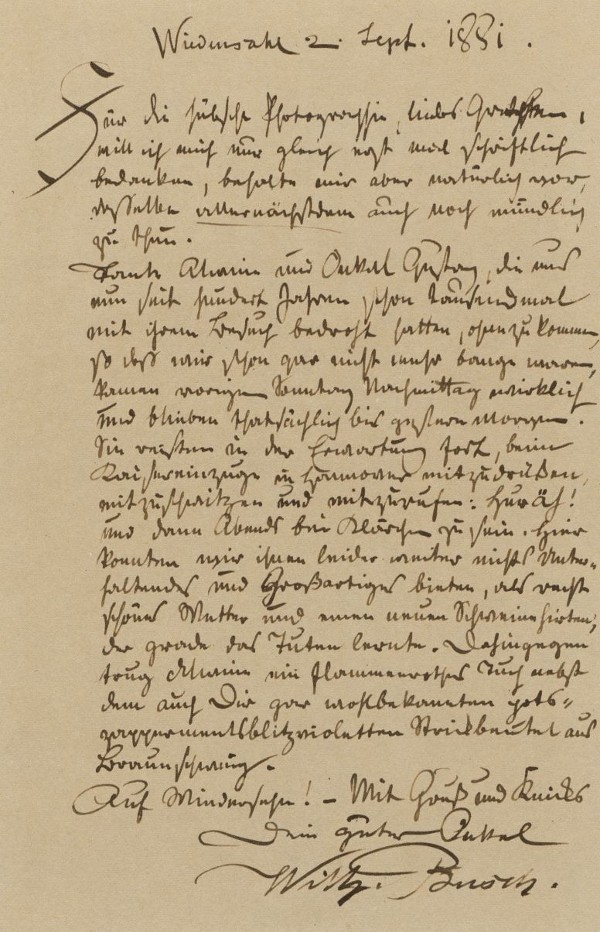 Wiedensahl 2. Sept. 1881.
Für die hübsche Photographie, liebes Gretchen,
will ich mich nur gleich erst mal schriftlich
bedanken, behalte mir aber natürlich vor,
dasselbe allernächstdem auch noch mündlich
zu thun.
Tante Alwine und Onkel Gustav, die uns
nun seit hundert Jahren schon tausendmal
mit ihrem Besuch bedroht hatten, ohne zu kommen,
so daß wir schon gar nicht mehr bange waren,
kamen vorigen Sonntag Nachmittag wirklich
und blieben thatsächlich bis gestern Morgen.
Sie reisten in der Erwartung fort, beim
Kaisereinzuge in Hannover mitzudrücken,
mitzuschwitzen und mitzurufen: Huräh!
und dann Abends bei Klärchen zu sein. Hier
konnten wir ihnen leider weiter nichts Unter-
haltendes und Großartiges bieten, als recht
schönes Wetter und einen neuen Schweinehirten,
der grade das Tuten lernte. Dahingegen
trug Alwine ein flammenrothes Tuch nebst
dem auch Dir gar wohlbekannten potz-
zapperments blitzvioletten Strickbeutel aus
Braunschweig.
Auf Wiedersehn! – Mit Gruß und Knicks
Dein guter Onkel
Wilh. Busch.